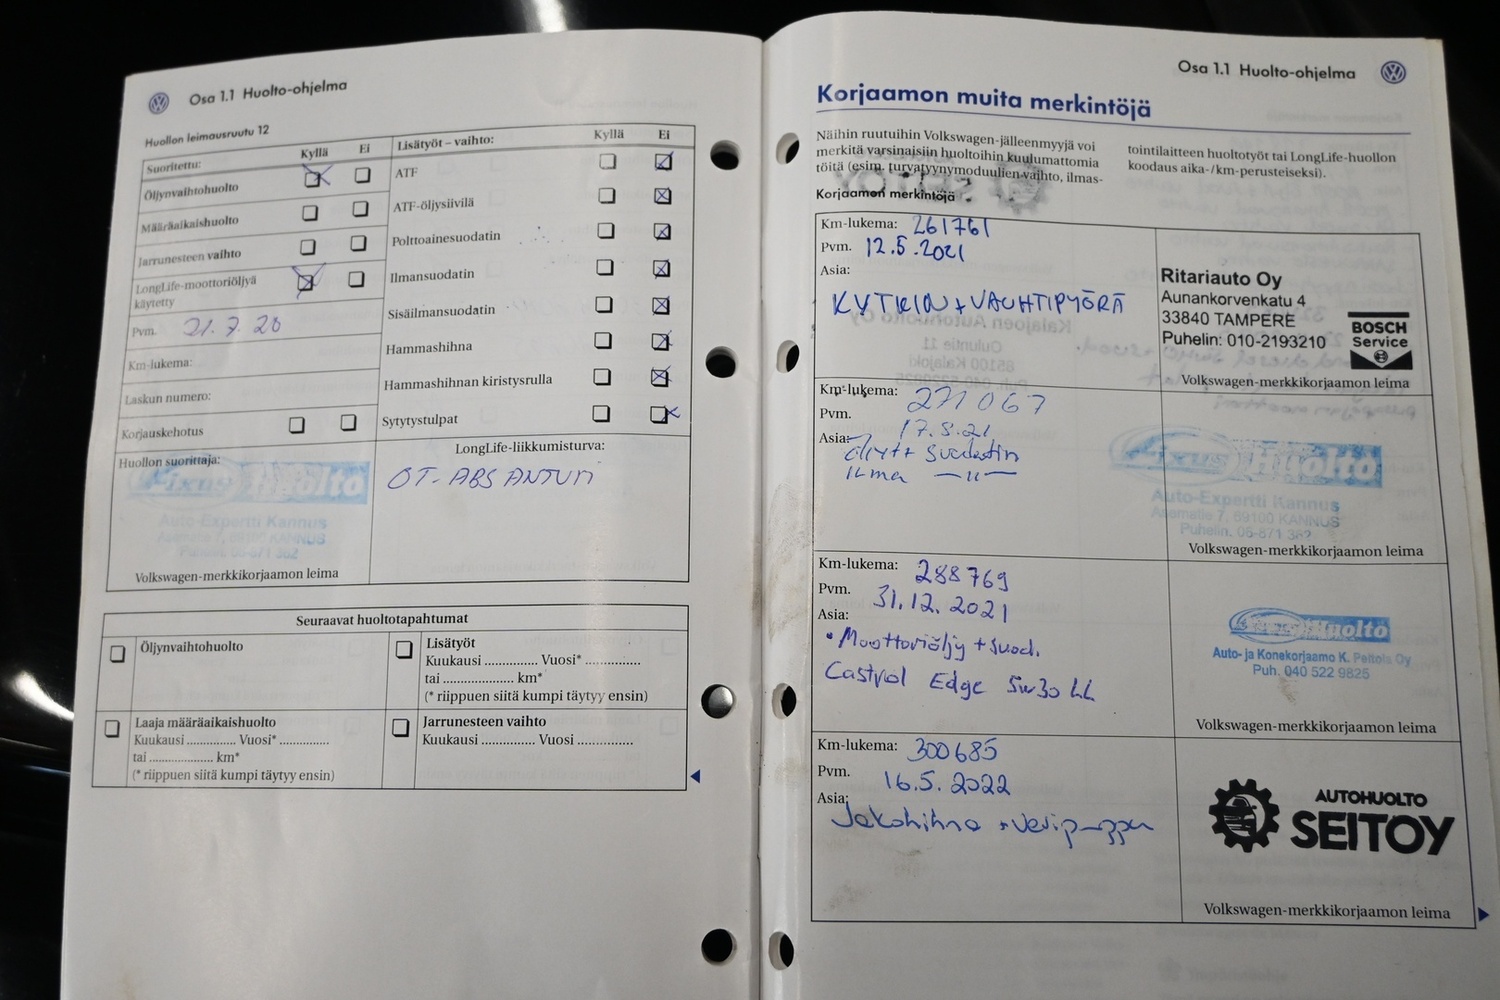 Osa 1.1 Huolto-ohjelma
Huollon leimausruutu 12
Suoritettu: Kyllä Ei
Öljynvaihtohuolto
Määräaikaishuolto
Jarrunesteen vaihto
LongLife-moottoriöljyä
käytetty
Pvm. 21.7.20
Km-lukema:
Laskun numero:
Korjauskehotus
Huollon suorittaja:
Fixus Huolto
Auto-Expertti Kannus
Asematie 7, 69100 KANNUS
Puhelin. 06-871 362
Volkswagen-merkkikorjaamon leima
Lisätyöt – vaihto: Kyllä Ei
ATF
ATF-öljysiivilä
Polttoainesuodatin
Ilmansuodatin
Sisäilmansuodatin
Hammashihna
Hammashihnan kiristysrulla
Sytytystulpat
LongLife-liikkumisturva:
OT-ABS ANTURI
Seuraavat huoltotapahtumat
Öljynvaihtohuolto
Lisätyöt
Kuukausi .............. Vuosi* ..............
tai ................. km*
(* riippuen siitä kumpi täytyy ensin)
Laaja määräaikaishuolto
Kuukausi ............ Vuosi* ............
tai ................. km*
(* riippuen siitä kumpi täytyy ensin)
Jarrunesteen vaihto
Kuukausi .............. Vuosi ..............
Osa 1.1 Huolto-ohjelma
Korjaamon muita merkintöjä
Näihin ruutuihin Volkswagen-jälleenmyyjä voi
merkitä varsinaisiin huoltoihin kuulumattomia
töitä (esim. turvatyynymoduulien vaihto, ilmas-
tointilaitteen huoltotyöt tai LongLife-huollon
koodaus aika-/km-perusteiseksi).
Korjaamon merkintöjä
Km-lukema: 261761
Pvm. 12.5.2021
Asia:
KYTKIN + VAUHTIPYÖRÄ
Ritariauto Oy
Aunankorvenkatu 4
33840 TAMPERE
Puhelin: 010-2193210
BOSCH
Service
Volkswagen-merkkikorjaamon leima
Km-lukema: 271067
Pvm. 17.8.21
Asia: öljyt + suodatin
ilma —"—
Fixus Huolto
Auto-Expertti Kannus
Asematie 7, 69100 KANNUS
Puhelin. 06-871 362
Volkswagen-merkkikorjaamon leima
Km-lukema: 288769
Pvm. 31.12.2021
Asia:
• Moottoriöljy + suod.
Castrol Edge 5w30 LL
Fixus Huolto
Auto- ja Konekorjaamo K. Peltola Oy
Puh. 040 522 9825
Volkswagen-merkkikorjaamon leima
Km-lukema: 300685
Pvm. 16.5.2022
Asia:
Jakohihna + vesipumppu
AUTOHUOLTO
SEITOY
Volkswagen-merkkikorjaamon leima